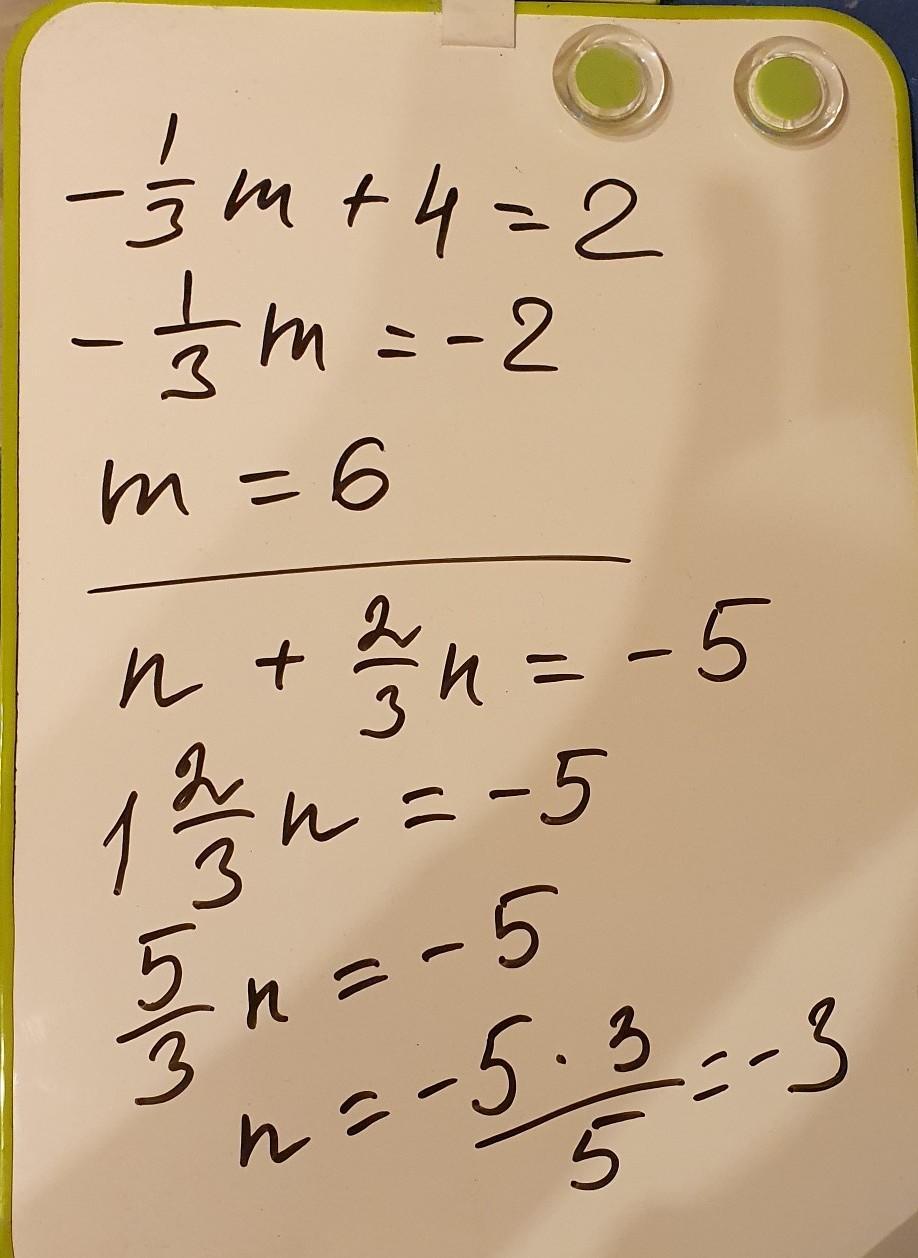 -1/3 m + 4 = 2
-1/3 m = -2
m = 6
n + 2/3 n = -5
1 2/3 n = -5
5/3 n = -5
n = -5 · 3/5 = -3